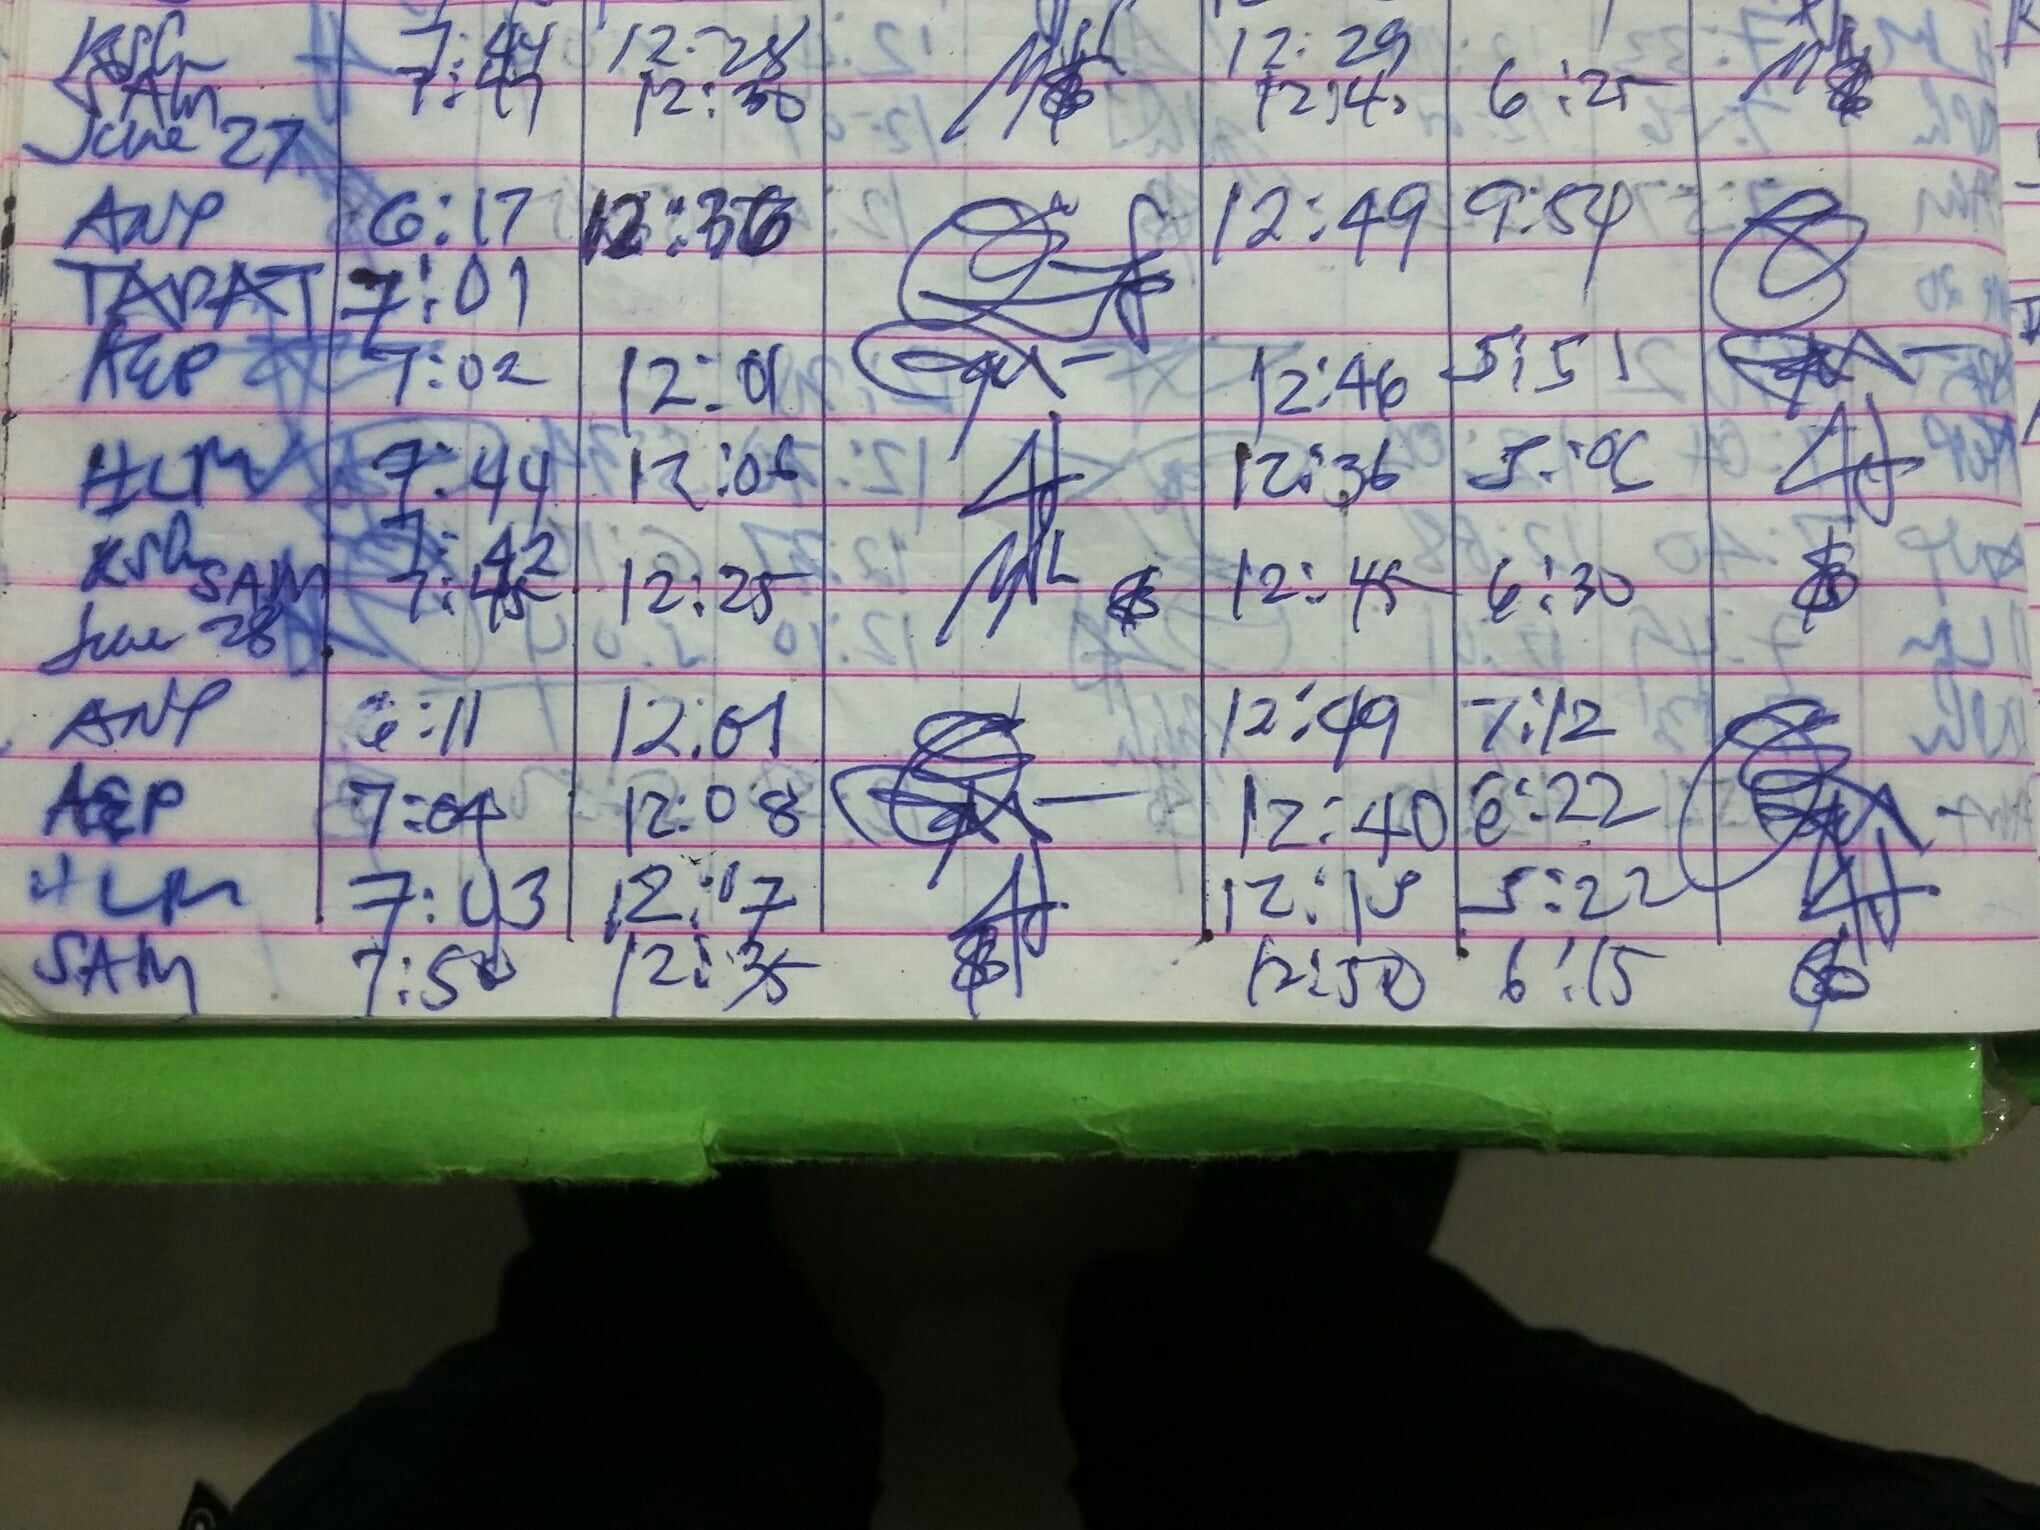 7:44 12:28 12:29
SAM 7:47 12:30 12:45 6:25
June 27
ANP 6:17 12:36 12:49 9:54
TAPAT 7:01
AEP 7:02 12:01 12:46 5:51
HLM 7:44 12:06 12:36 5:06
7:42
SAM 7:45 12:25 12:45 6:30
June 28
ANP 6:11 12:01 12:49 7:12
AEP 7:04 12:08 12:40 6:22
HLM 7:43 12:17 12:18 5:22
SAM 7:50 12:35 12:50 6:15